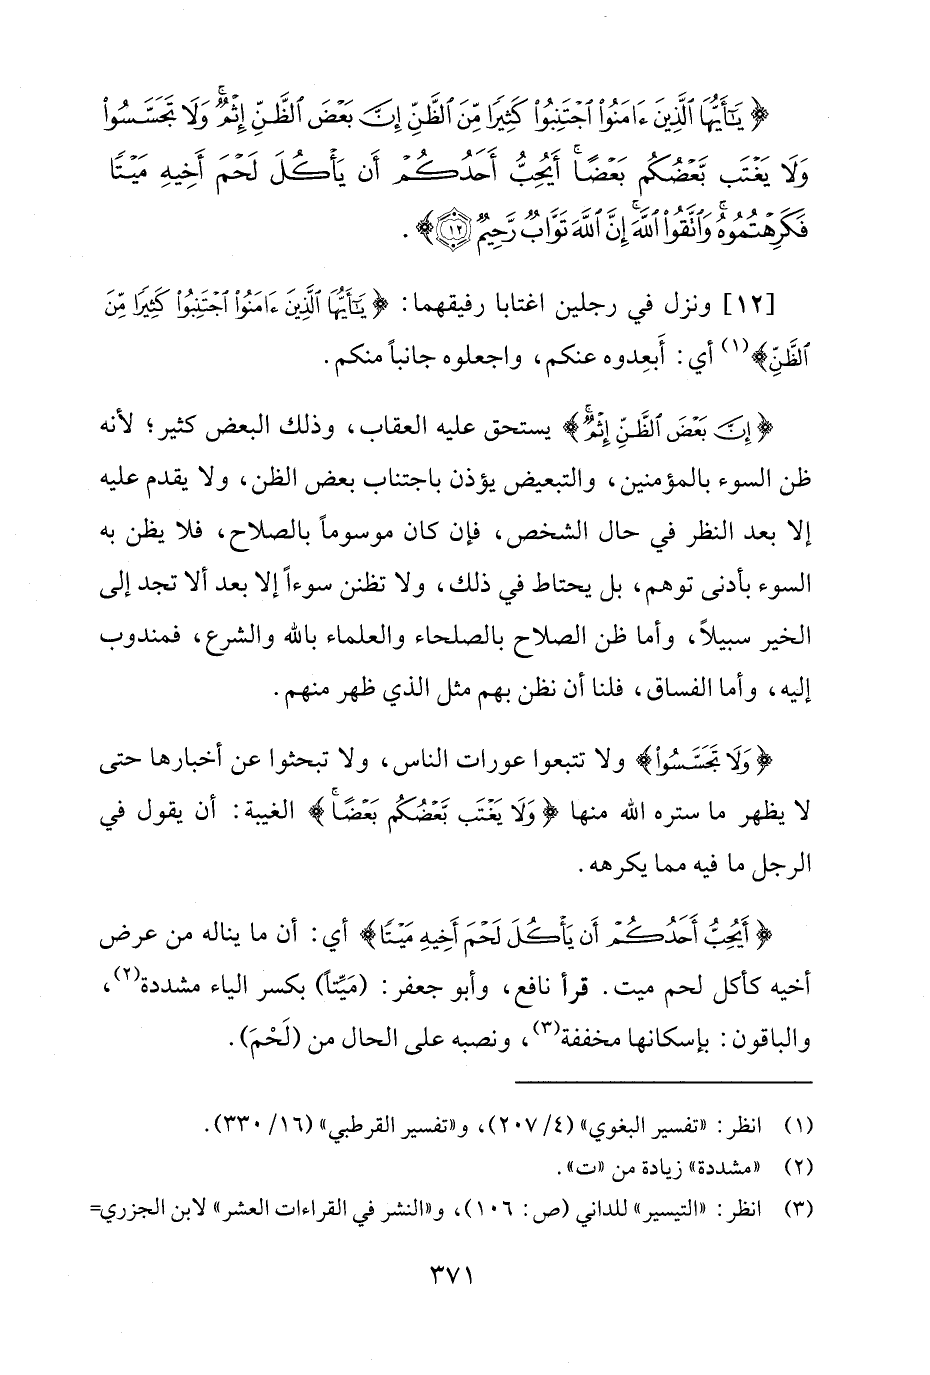 ﴿ يَٰٓأَيُّهَا ٱلَّذِينَ ءَامَنُوا۟ ٱجْتَنِبُوا۟ كَثِيرًا مِّنَ ٱلظَّنِّ إِنَّ بَعْضَ ٱلظَّنِّ إِثْمٌ ۖ وَلَا تَجَسَّسُوا۟
وَلَا يَغْتَب بَّعْضُكُم بَعْضًا ۚ أَيُحِبُّ أَحَدُكُمْ أَن يَأْكُلَ لَحْمَ أَخِيهِ مَيْتًا
فَكَرِهْتُمُوهُ ۚ وَٱتَّقُوا۟ ٱللَّهَ ۚ إِنَّ ٱللَّهَ تَوَّابٌ رَّحِيمٌ ١٢﴾ .
[١٢] ونزل في رجلين اغتابا رفيقهما: ﴿يَٰٓأَيُّهَا ٱلَّذِينَ ءَامَنُوا۟ ٱجْتَنِبُوا۟ كَثِيرًا مِّنَ
ٱلظَّنِّ﴾(١) أي: أَبعِدوه عنكم، واجعلوه جانباً منكم.
﴿إِنَّ بَعْضَ ٱلظَّنِّ إِثْمٌ ۖ﴾ يستحق عليه العقاب، وذلك البعض كثير؛ لأنه
ظن السوء بالمؤمنين، والتبعيض يؤذن باجتناب بعض الظن، ولا يقدم عليه
إلا بعد النظر في حال الشخص، فإن كان موسوماً بالصلاح، فلا يظن به
السوء بأدنى توهم، بل يحتاط في ذلك، ولا تظنن سوءاً إلا بعد ألا تجد إلى
الخير سبيلاً، وأما ظن الصلاح بالصلحاء والعلماء بالله والشرع، فمندوب
إليه، وأما الفساق، فلنا أن نظن بهم مثل الذي ظهر منهم.
﴿وَلَا تَجَسَّسُوا۟﴾ ولا تتبعوا عورات الناس، ولا تبحثوا عن أخبارها حتى
لا يظهر ما ستره الله منها ﴿وَلَا يَغْتَب بَّعْضُكُم بَعْضًا ۚ﴾ الغيبة: أن يقول في
الرجل ما فيه مما يكرهه.
﴿أَيُحِبُّ أَحَدُكُمْ أَن يَأْكُلَ لَحْمَ أَخِيهِ مَيْتًا﴾ أي: أن ما يناله من عرض
أخيه كأكل لحم ميت. قرأ نافع، وأبو جعفر: (مَيِّتاً) بكسر الياء مشددة(٢)،
والباقون: بإسكانها مخففة(٣)، ونصبه على الحال من (لَحْمَ).
(١) انظر: «تفسير البغوي» (٤/ ٢٠٧)، و«تفسير القرطبي» (١٦/ ٣٣٠).
(٢) «مشددة» زيادة من «ت».
(٣) انظر: «التيسير» للداني (ص: ١٠٦)، و«النشر في القراءات العشر» لابن الجزري=
٣٧١